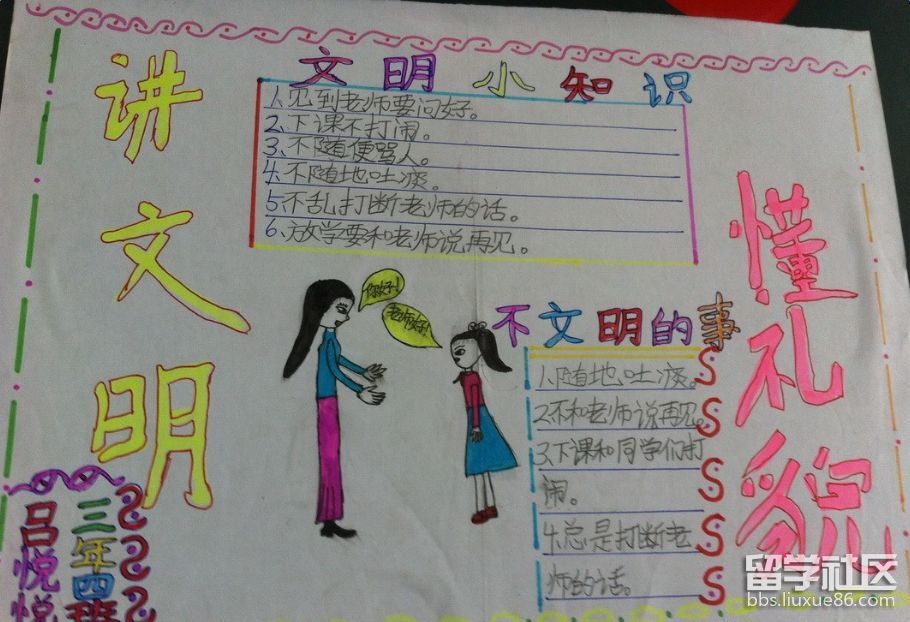 讲文明
文明小知识
1、见到老师要问好。
2、下课不打闹。
3、不随便骂人。
4、不随地吐痰。
5不乱打断老师的话。
6、放学要和老师说再见。
你好!
老师好!
不文明的事
1.随地吐痰。
2.不和老师说再见。
3、下课和同学们打
闹。
4.总是打断老
师的话。
懂礼貌
三年四班
吕悦悦
留学社区
bbs.liuxue86.com